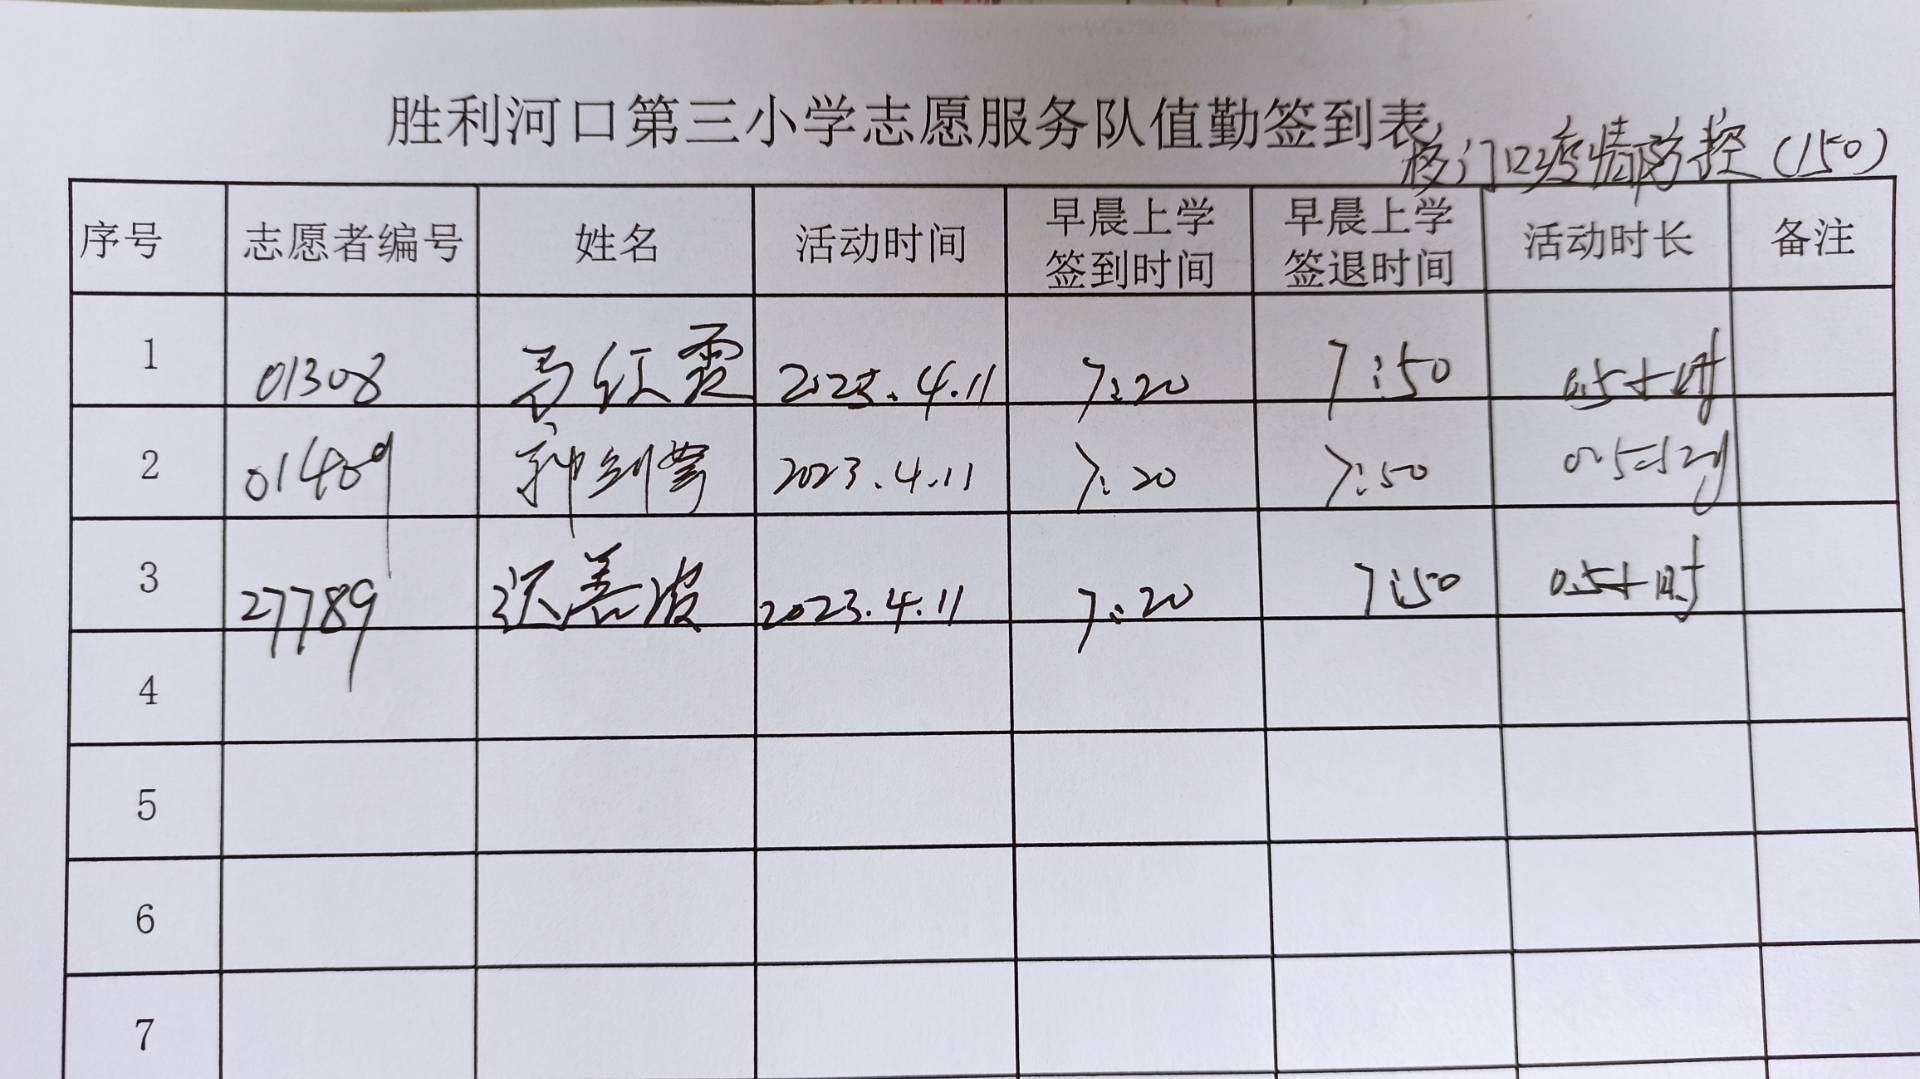 胜利河口第三小学志愿服务队值勤签到表
校门口疫情防控（150）
序号 志愿者编号 姓名 活动时间 早晨上学签到时间 早晨上学签退时间 活动时长 备注
1 01308 马红霞 2023.4.11 7:20 7:50 0.5小时
2 01409 2023.4.11 7:20 7:50 0.5小时
3 27789 沃善波 2023.4.11 7:20 7:50 0.5小时
4
5
6
7